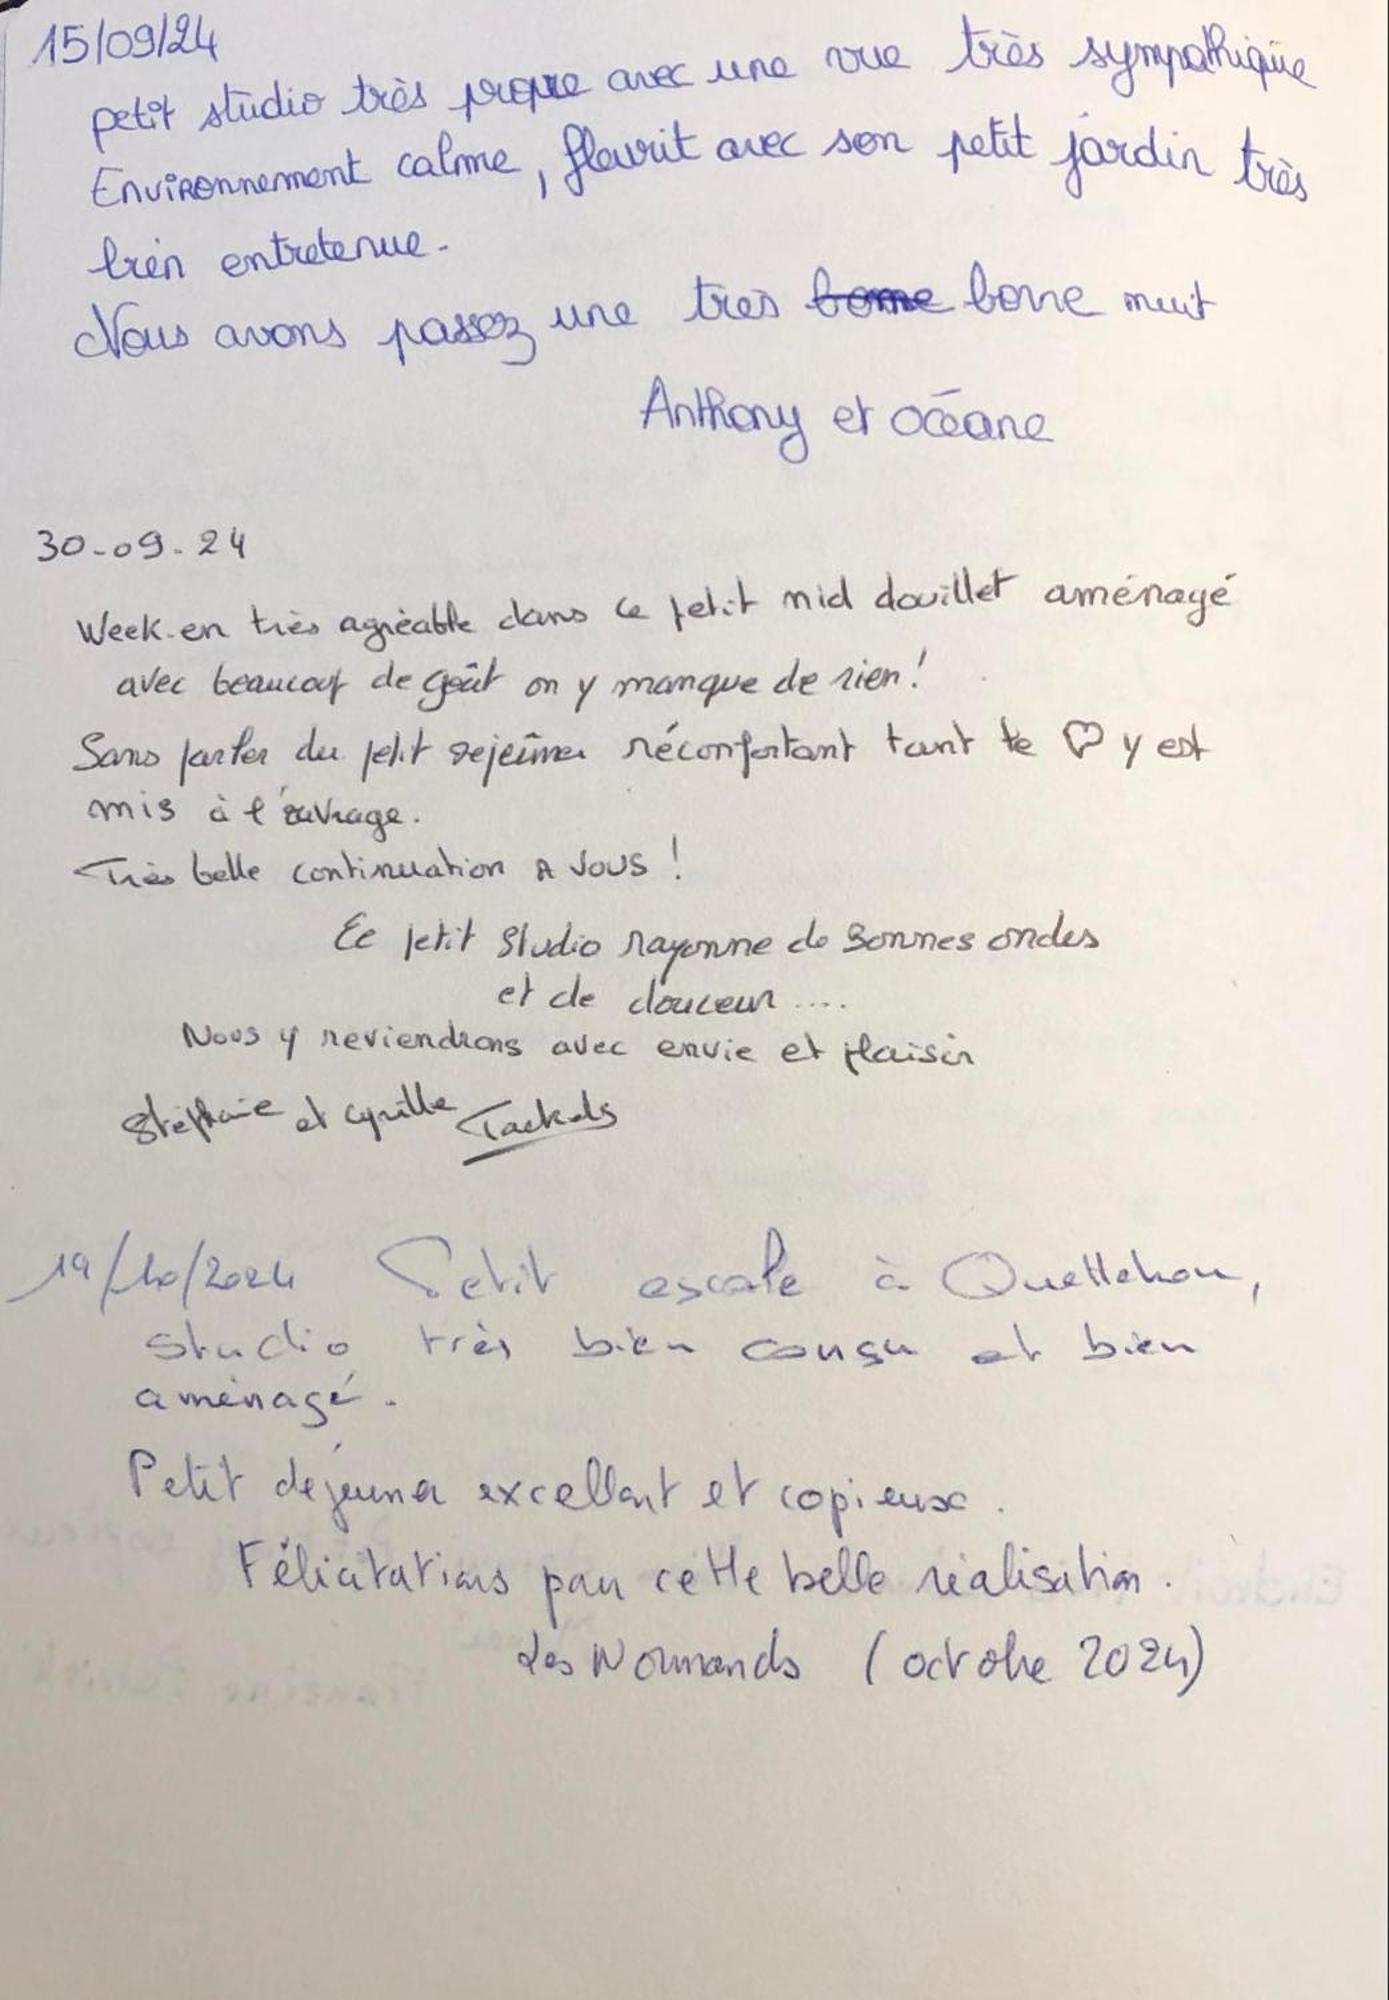 15/09/24
petit studio très propre avec une vue très sympathique
Environnement calme, fleurit avec son petit jardin très
bien entretenue.
Nous avons passez une très bonne bonne nuit
Anthony et océane
30-09-24
Week-en très agréable dans ce petit nid douillet aménagé
avec beaucoup de goût on y manque de rien !
Sans parler du petit dejeûner réconfortant tant le ♡ y est
mis à l'ouvrage.
Très belle continuation A Vous !
Ce petit studio rayonne de Bonnes ondes
et de douceur ....
Nous y reviendrons avec envie et plaisir
Stéphanie et Cyrille
19/10/2024 Petit escale à Quettehou,
studio très bien consu et bien
aménagé.
Petit déjeuner excellent et copieux.
Félicitations pour cette belle réalisation.
Les Normands (octobre 2024)